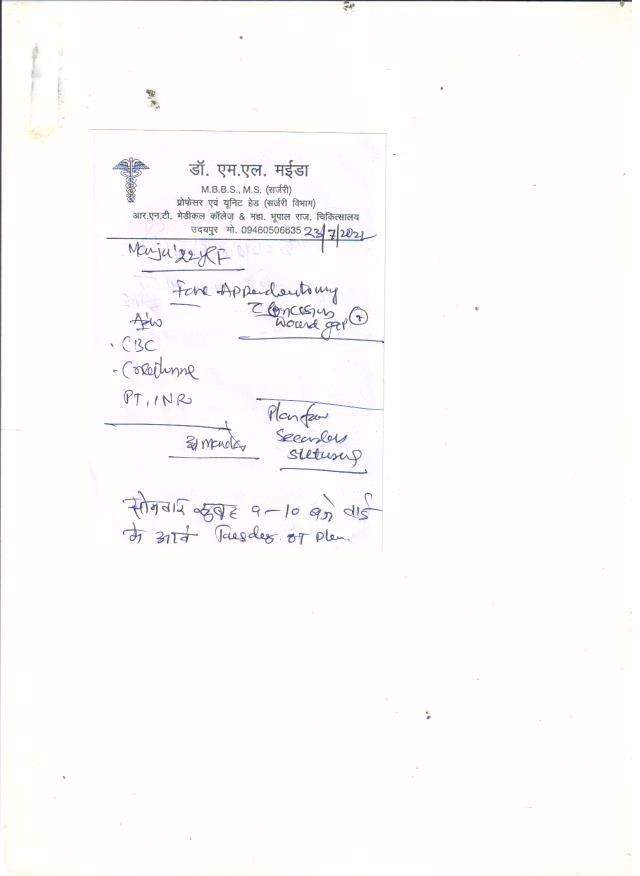 डॉ. एम.एल. मईडा
M.B.B.S., M.S. (सर्जरी)
प्रोफेसर एवं यूनिट हेड (सर्जरी विभाग)
आर.एन.टी. मेडीकल कॉलेज & महा. भूपाल राज. चिकित्सालय
उदयपुर मो. 09460506635 23/7/2021
Manju 22yr F
Appendectomy
wound gap +
· CBC
PT, INR
Plan for
Secondary
suturing
सोमवार सुबह 9-10 बजे वार्ड
में आवे Tuesday OT Plan